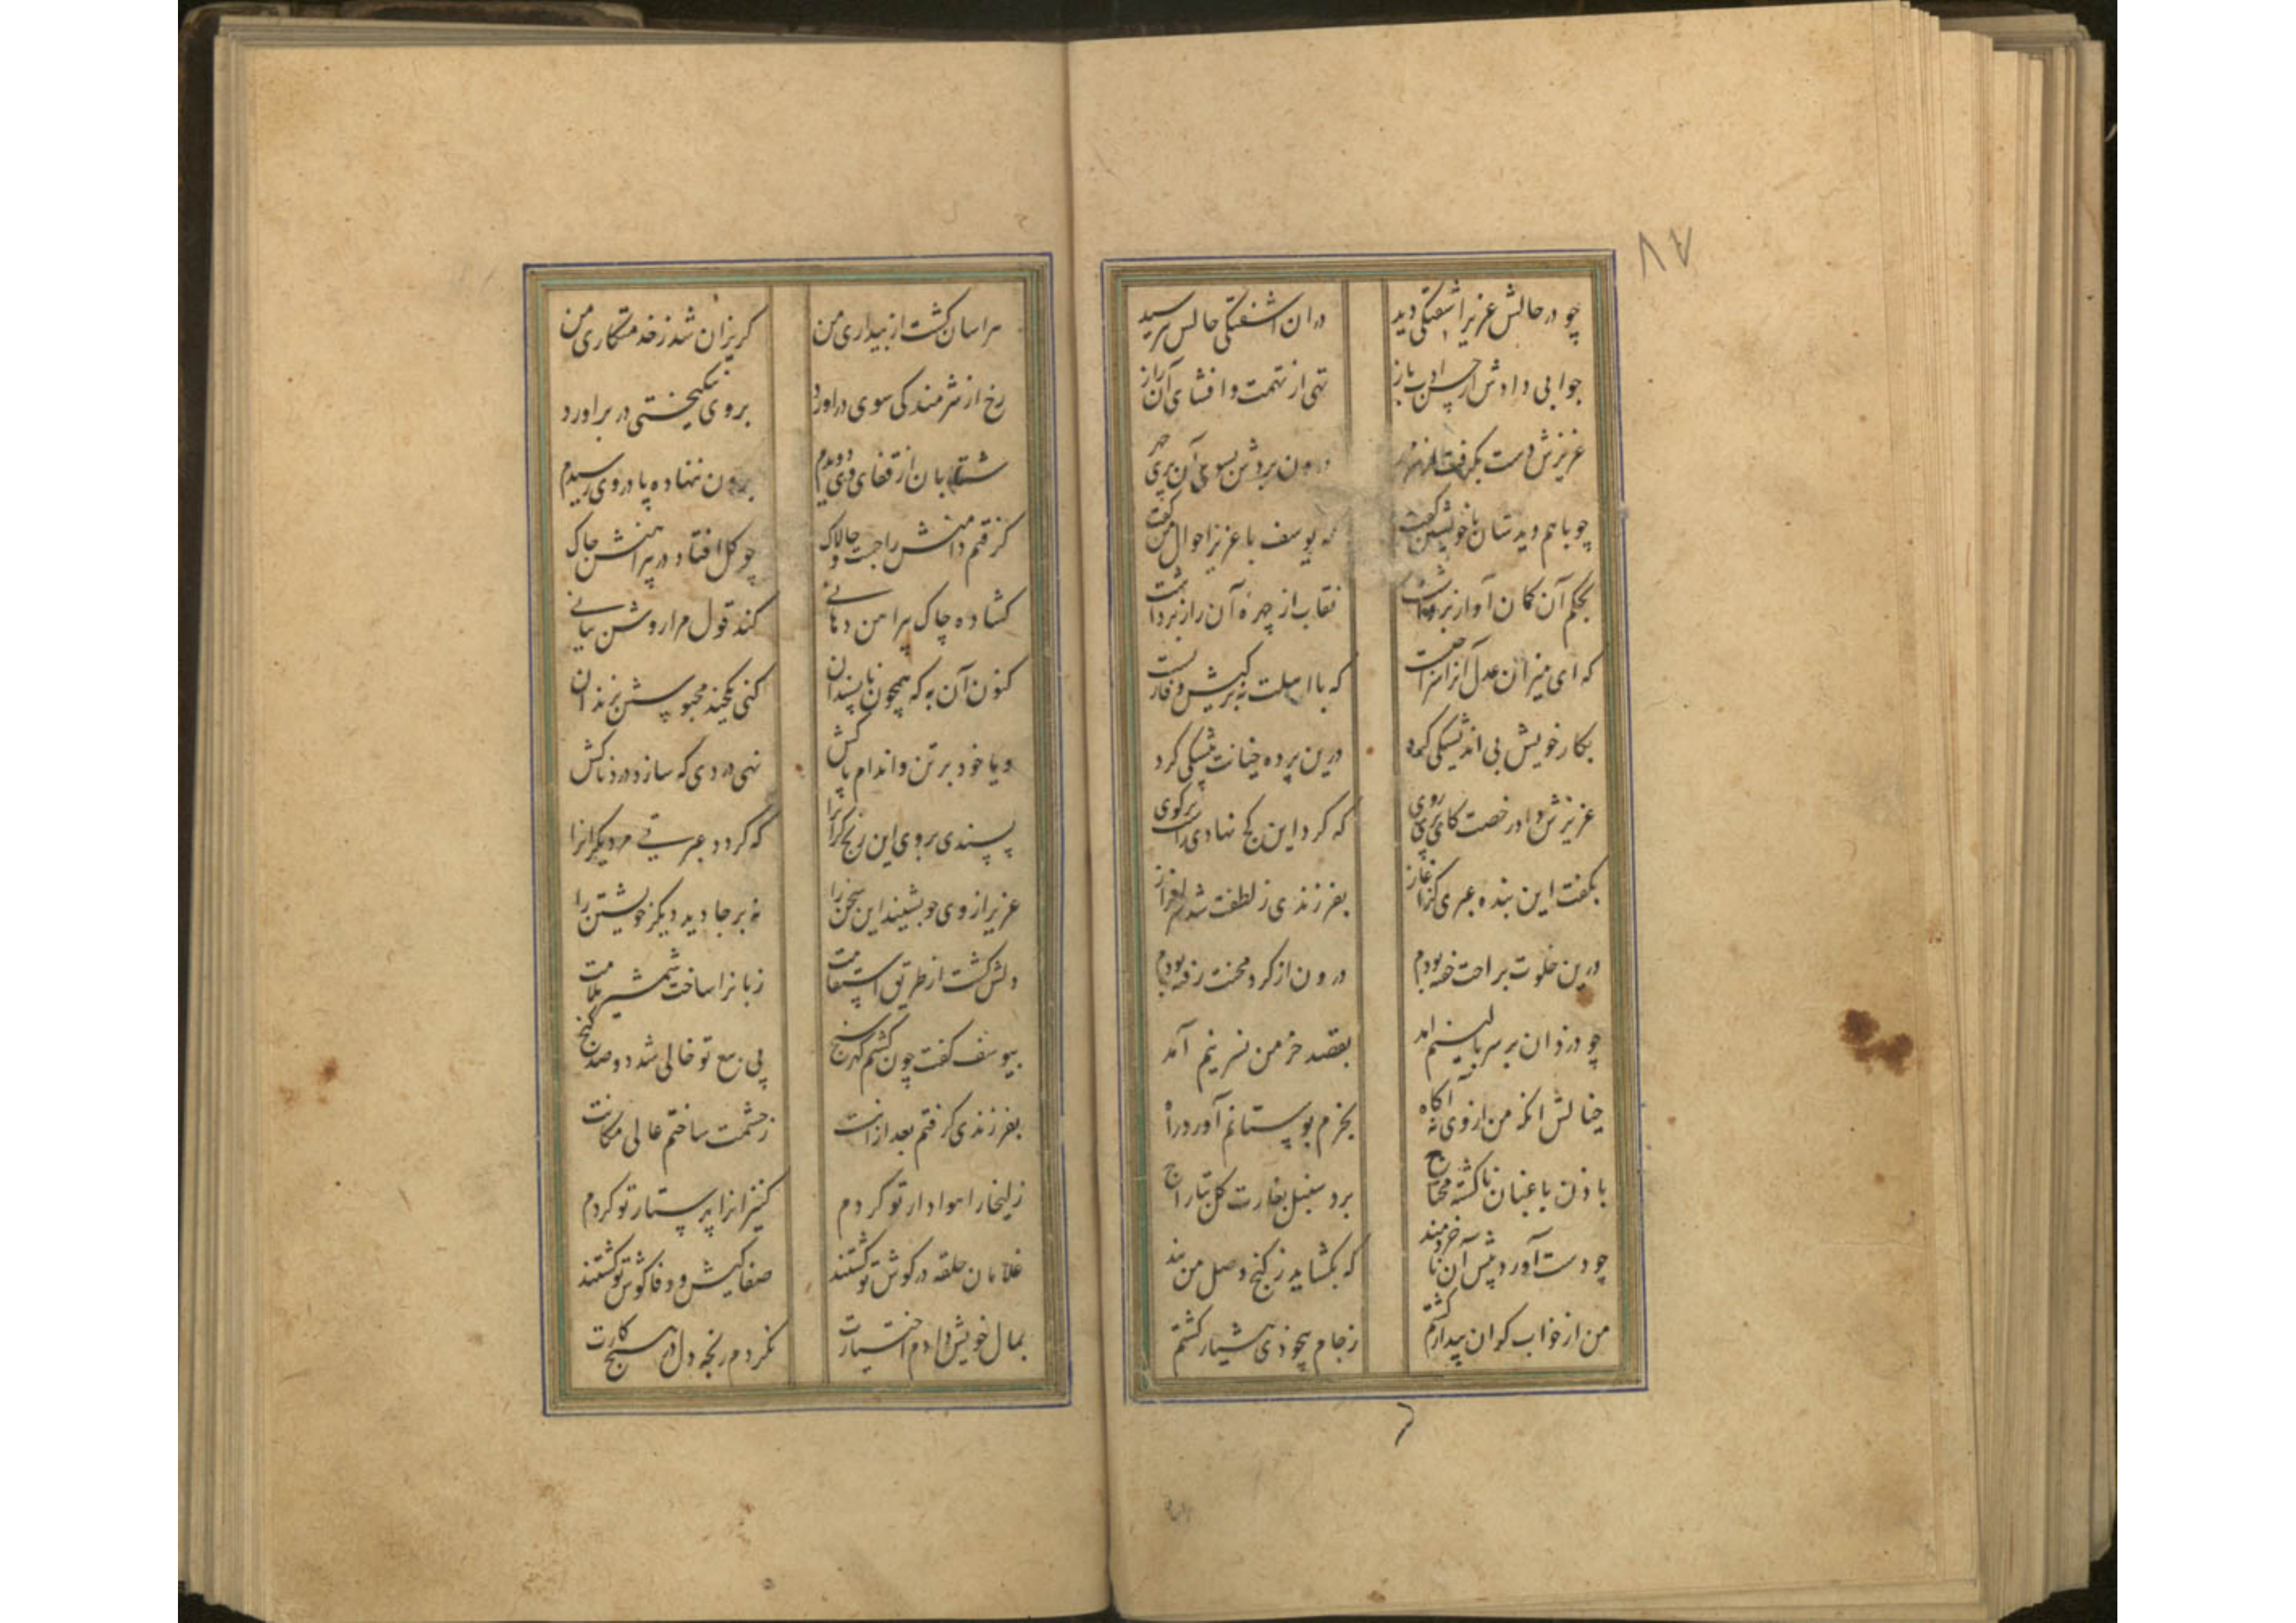 ۸۷
چو در حالش عزیز آشفتگی دید
در ان اشفتگی حالش بپرسید
جوابی دادش از حسن ادب باز
تهی از تهمت و افشای آن راز
عزیزش دست بگرفت از سر مهر
درون بردش بسوی آن پری چهر
چو با هم دیدشان با خویشتن گفت
که یوسف با عزیز احوال من گفت
بحکم آن کمان آواز برداشت
نقاب از چهره آن راز برداشت
که ای میزان عدل آنرا سزا چیست
که با اهلت نه بر کیش وفا زیست
بکار خویش بی اندیشکی کرد
درین پرده خیانت پیشکی کرد
عزیزش داد رخصت کای پری روی
که کرد این کج نهادی راست بر کوی
بکفت این بنده عبری کز آغاز
بفرزندی ز لطفت شد سرافراز
درین خلوت براحت خفته بودم
درون از کرد محنت رفته بودم
چو دزدان بر سر بالینم امد
بقصد خرمن نسرینم آمد
خیالش انکه من از وی نه آکاه
بخرم بوستانم آورد راه
باذن باغبان ناکشته محتاج
برد سنبل بغارت کل بتاراج
چو دست آورد پیش آن ناخردمند
که بکشاید ز کنج وصل من بند
من از خواب کران بیدار کشتم
ز جام بیخودی هشیار کشتم
هراسان کشت از بیداری من
کریزان شد ز خدمتکاری من
رخ از شرمندکی سوی در اورد
بروی نیکبختی در براورد
شتابان از قفای وی دویدم
برون ننهاده پا در وی رسیدم
کرفتم دامنش را چست و چالاک
چو کل افتاد در پیراهنش چاک
کشاده چاک پیراهن دهانی
کند قول مرا روشن بیانی
کنون آن به که همچون ناپسندان
کنی یکچند محبوسش بزندان
و یا خود بر تن و اندام پاکش
نهی دردی که سازد دردناکش
پسندی بر وی این رنج کران را
که کردد عبرتی مر دیکرانرا
عزیز از وی چو بشنید این سخن را
نه بر جا دید دیکر خویشتن را
دلش کشت از طریق استقامت
زبانرا ساخت شمشیر ملامت
بیوسف کفت چون کشتم کهر سنج
پی بیع تو خالی شد دو صد کنج
بفرزندی کرفتم بعد ازانت
ز حشمت ساختم عالی مکانت
زلیخا را هوادار تو کردم
کنیزانرا پرستار تو کردم
غلامان حلقه در کوش تو کشتند
صفا کیش و وفا کوش تو کشتند
بمال خویش دادم اختیارت
نکردم رنجه دل در هیچ کارت